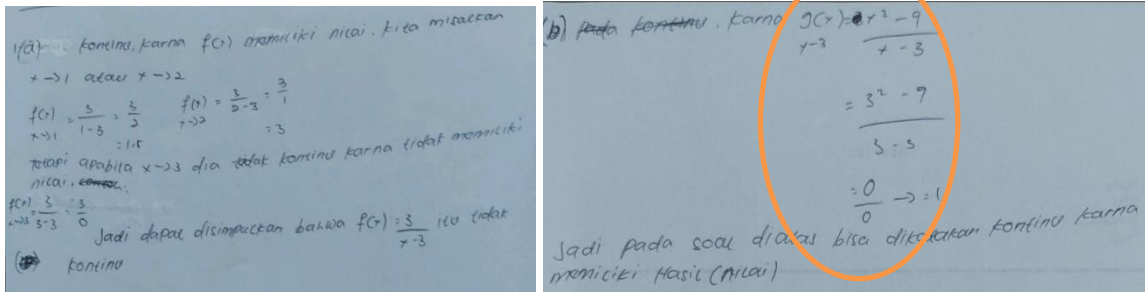 1(a) kontinu, karna f(x) memiliki nilai. kita misalkan
x→1 atau x→2
f(x) = 3/1-3 = 3/2 f(x) = 3/2-3 = 3/1
x→1 x→2
= 1.5 = 3
tetapi apabila x→3 dia tidak kontinu karna tidak memiliki
nilai.
f(x) = 3/3-3 = 3/0
x→3
Jadi dapat disimpulkan bahwa f(x) = 3/x-3 itu tidak
kontinu
(b) pada kontinu. karna g(x) = x² - 9 / x - 3
x→3
= 3² - 9 / 3 - 3
= 0/0 → = 1
Jadi pada soal diatas bisa dikatakan kontinu karna
memiliki Hasil (nilai)